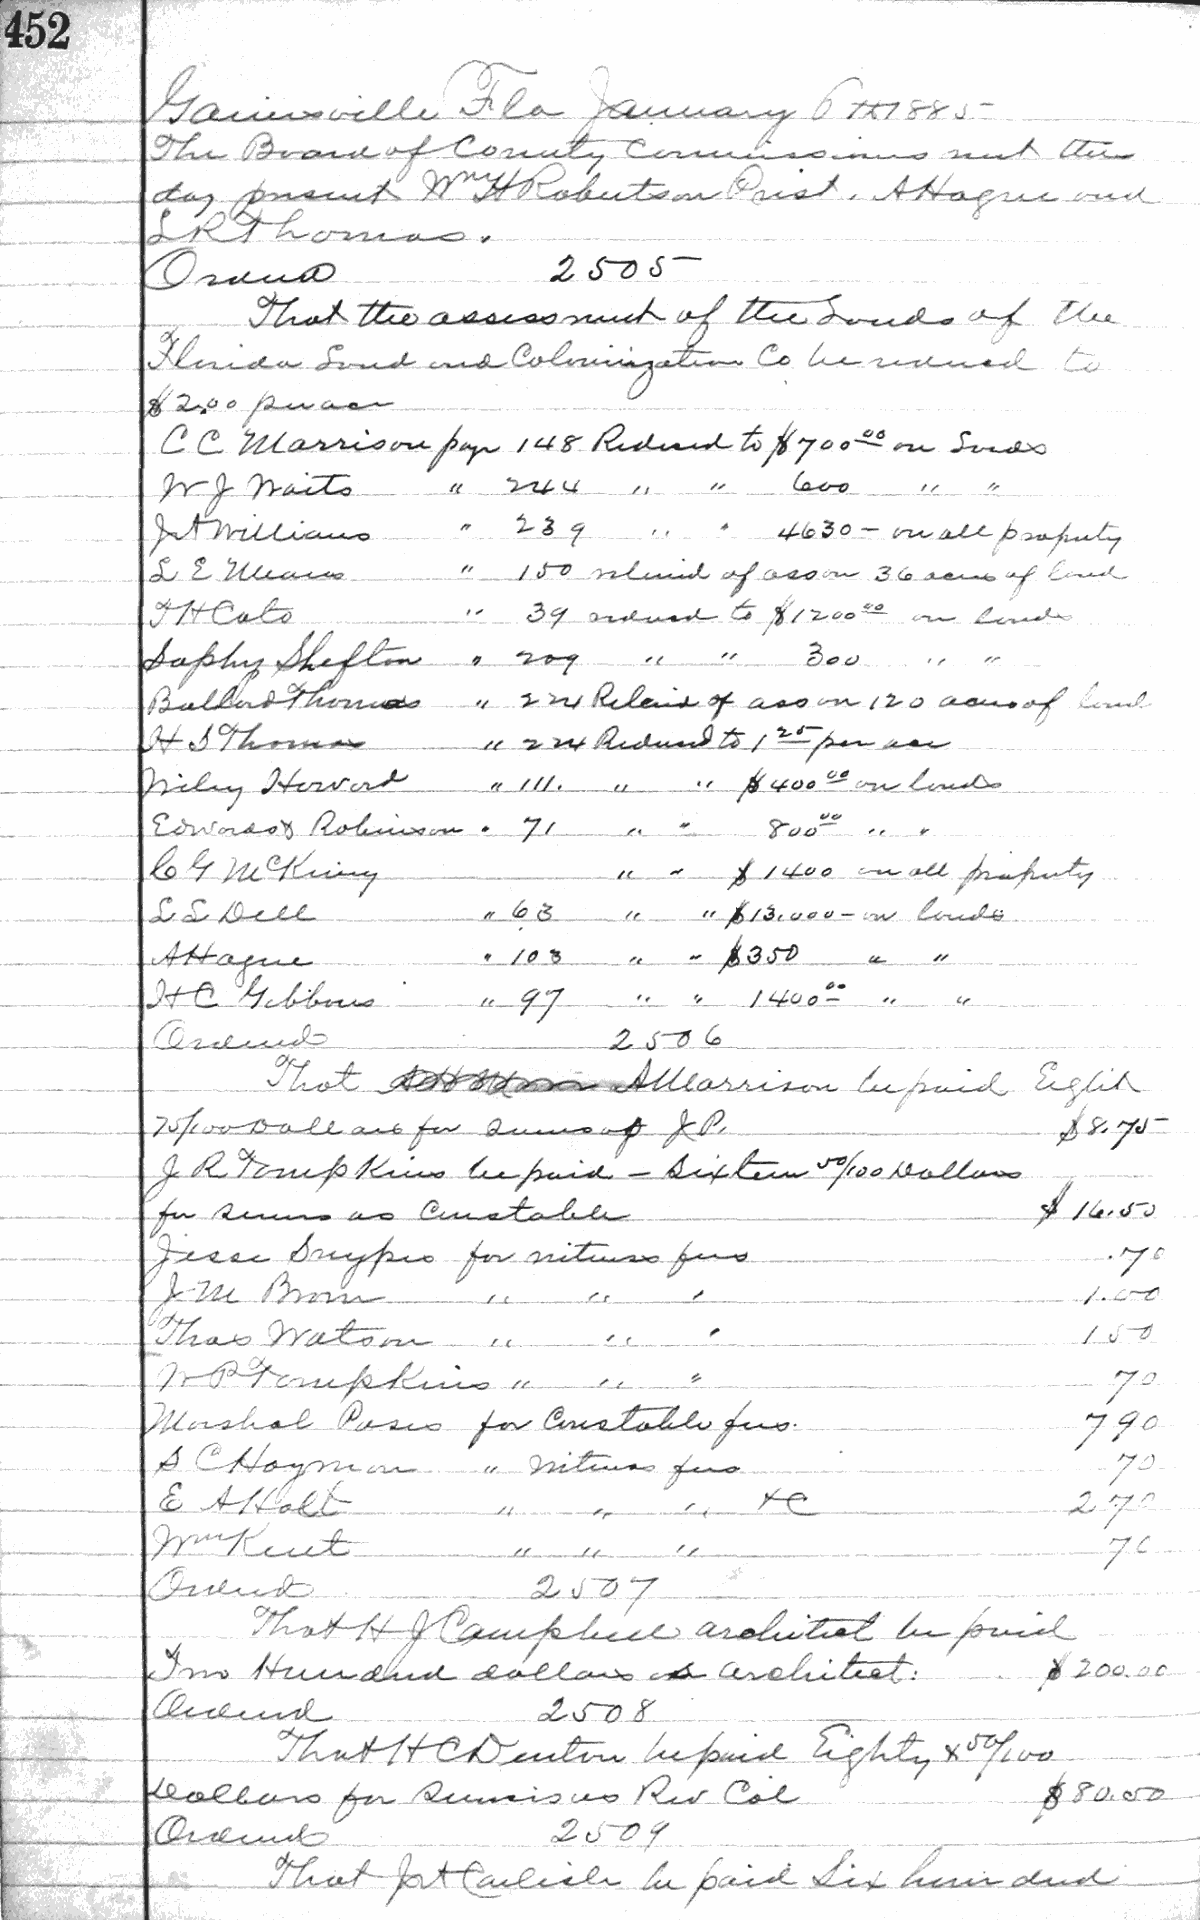 452
Gainesville Fla January 6th 1885
The Board of County Commissioners met this
day present Wm H Robertson Prist. A Hague and
L R Thomas.
Ordered 2505
That the assessment of the Lands of the
Florida Land and Colonization Co be reduced to
$2.00 per acre
C C Marrison page 148 Reduced to $700 00 on Lands
W J Waits " 244 " " 600 " "
J A Williams " 239 " " 4630 - on all property
L E Means " 150 relieved of ass on 36 acres of land
T H Cato " 39 reduced to $1200 00 on lands
Saphy Shefton " 209 " " 300 " "
Ballard Thomas " 224 Relievd of ass on 120 acres of land
H S Thomas " 224 Reduced to 1 25 per acre
Wiley Howard " 111. " " $400 00 on lands
Edwards & Robinson " 71 " " 800 00 " "
C G McKinny " " $1400 on all property
L L Dell " 63 " " $13.000 - on lands
A Hague " 103 " " $350 " "
H C Gibbons " 97 " " 1400 00 " "
Ordered 2506
That A Marrison be paid Eight
75/100 Dollars for servs of J P. $8.75
J R Tompkins be paid - Sixteen 50/100 Dollars
for servs as Constable $16.50
Jesse for witness fees .70
J M Brown " " " 1.00
Thos Watson " " " 150
W P Tompkins " " " 70
Marshal Poses for Constable fees. 790
S C Hayman " witness fees 70
E A Holt " " " &C 270
Wm Kent " " " 70
Ordered 2507
That H J Campbell architect be paid
Two Hundred dollars as architect. $200.00
Ordered 2508
That H C Denton be paid Eighty & 50/100
Dollars for servcis as Rev Col $80.50
Ordered 2509
That Jot Carlisle be paid Six hundred